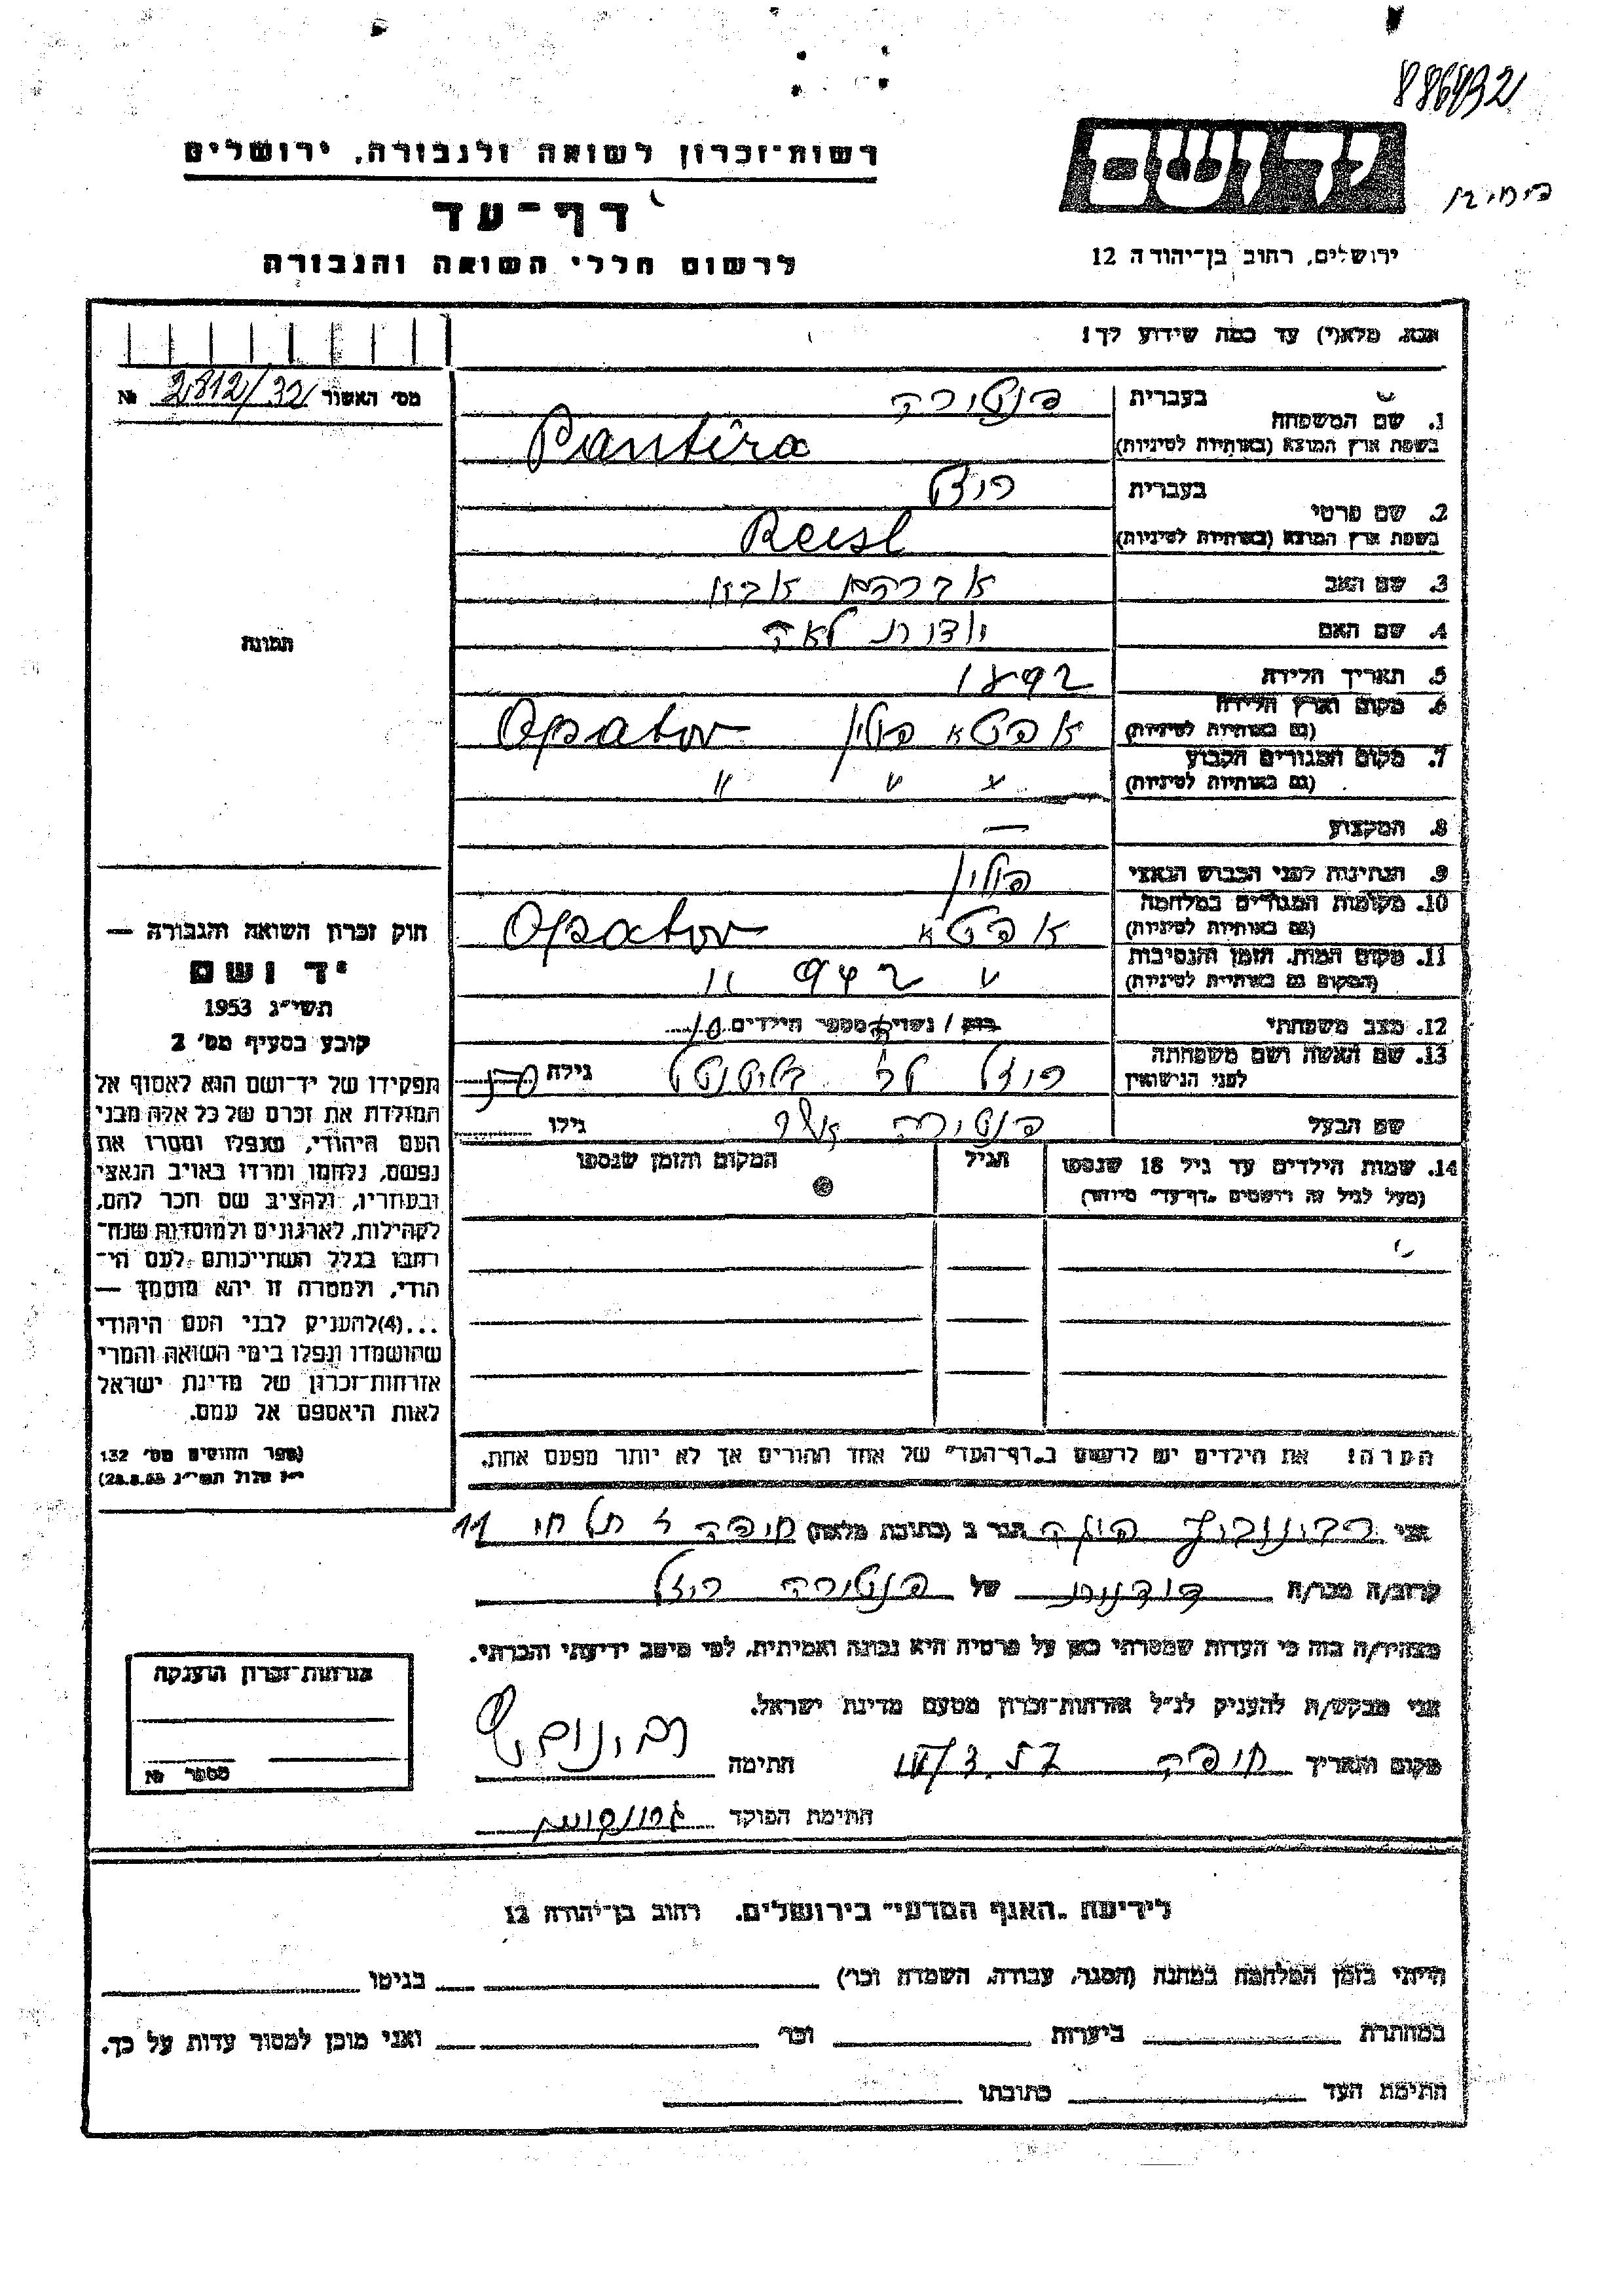 886432
רשות־זכרון לשואה ולגבורה, ירושלים
יד ושם
דף־עד
ירושלים, רחוב בן־יהודה 12
לרשום חללי השואה והגבורה
אנא, מלא(י) עד כמה שידוע לך!
מס׳ האשור 2812/32 №
1. שם המשפחה
בעברית פנטירה
בשפת ארץ המוצא (באותיות לטיניות) Pantira
2. שם פרטי
בעברית רוזל
בשפת ארץ המוצא (באותיות לטיניות) Reisl
3. שם האב אברהם
4. שם האם לאה
5. תאריך הלידה
6. מקום וארץ הלידה
(גם באותיות לטיניות) אפטא פולין Opatov
7. מקום המגורים הקבוע
(גם באותיות לטיניות) " " "
8. המקצוע —
9. הנתינות לפני הכבוש הנאצי פולין
10. מקומות המגורים במלחמה
(גם באותיות לטיניות) אפטא Opatov
11. מקום המות, הזמן והנסיבות
(המקום גם באותיות לטיניות)
12. מצב משפחתי רווק / נשוי מספר הילדים
13. שם האשה ושם משפחתה
לפני הנשואין רוזל גילה
שם הבעל פנטירה גילו
14. שמות הילדים עד גיל 18 שנספו
(מעל לגיל זה רושמים "דף־עד" מיוחד)
הגיל
המקום והזמן שנספו
הערה! את הילדים יש לרשום ב"דף־העד" של אחד ההורים אך לא יותר מפעם אחת.
תמונה
חוק זכרון השואה והגבורה —
יד ושם
תשי״ג 1953
קובע בסעיף מס׳ 2
תפקידו של יד־ושם הוא לאסוף אל
המולדת את זכרם של כל אלה מבני
העם היהודי, שנפלו ומסרו את
נפשם, נלחמו ומרדו באויב הנאצי
ובעוזריו, ולהציב שם וזכר להם,
לקהילות, לארגונים ולמוסדות שנח־
רבו בגלל השתייכותם לעם הי־
הודי, ולמטרה זו יהא מוסמך —
...(4)להעניק לבני העם היהודי
שהושמדו ונפלו בימי השואה והמרי
אזרחות־זכרון של מדינת ישראל
לאות היאספם אל עמם.
(ספר החוקים מס׳ 132
י״ז אלול תשי״ג 28.8.53)
אני רבינוביץ הגר ב (כתובת מלאה) חיפה תל חי 11
קרוב/ה מכר/ה של פנטירה רוזל
מצהיר/ה בזה כי העדות שמסרתי כאן על פרטיה היא נכונה ואמיתית, לפי מיטב ידיעתי והכרתי.
אני מבקש/ת להעניק לנ״ל אזרחות־זכרון מטעם מדינת ישראל.
מקום ותאריך חיפה חתימה רבינוביץ
חתימת הפוקד
אזרחות־זכרון הוענקה
מספר №
לידיעת "האגף המדעי" בירושלים, רחוב בן־יהודה 12
הייתי בזמן המלחמה במחנה (הסגר, עבודה, השמדה וכו׳) בגיטו
במחתרת ביערות וכו׳ ואני מוכן למסור עדות על כך.
חתימת העד כתובתו